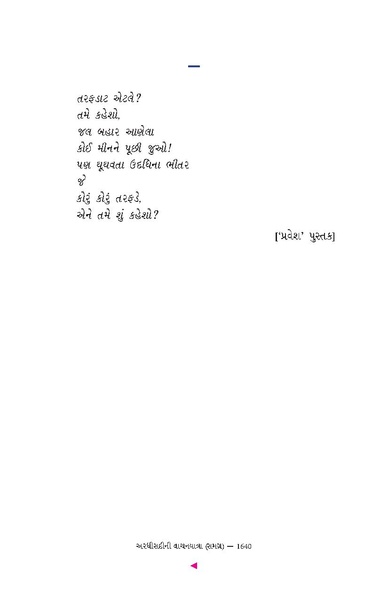 તરફડાટ એટલે?
તમે કહેશો,
જલ બહાર આણેલા
કોઈ મીનને પૂછી જુઓ!
પણ ઘૂઘવતા ઉદધિના ભીતર
જે
કોરું કોરું તરફડે,
એને તમે શું કહેશો?
['પ્રવેશ' પુસ્તક]
અરધીસદીની વાચનયાત્રા (સમગ્ર) — 1640